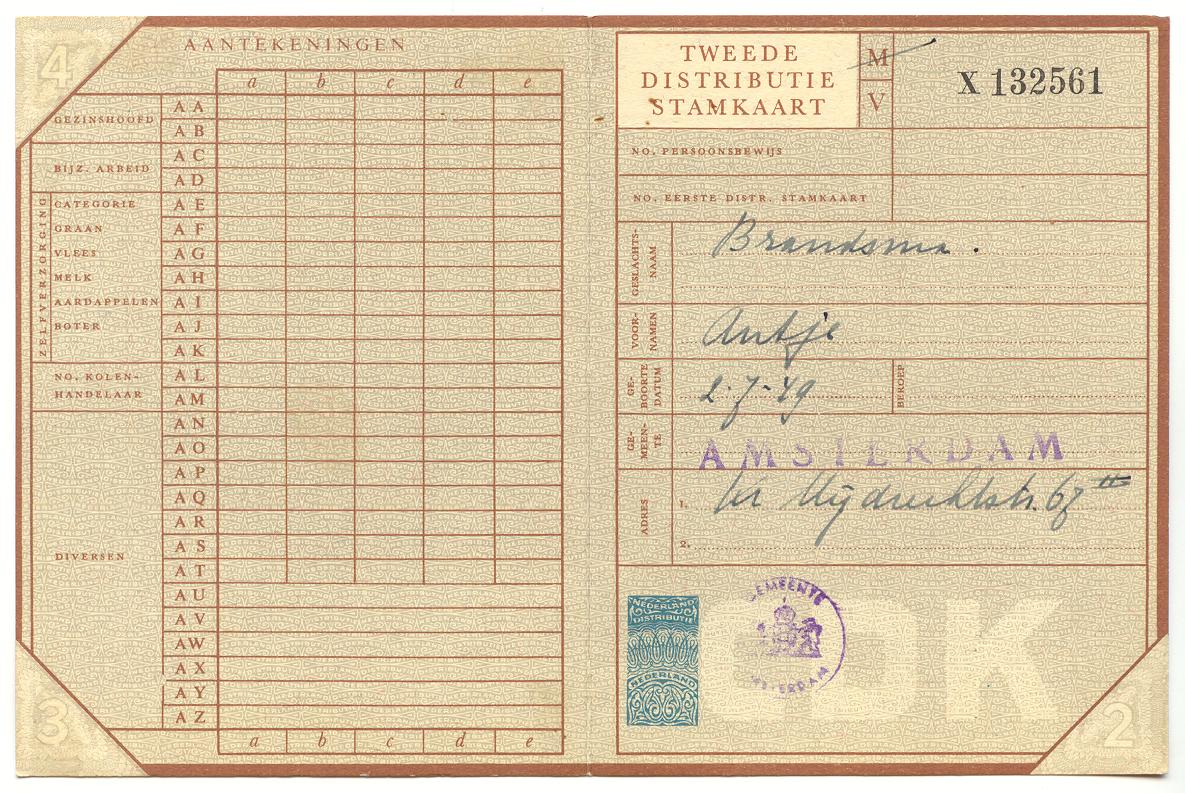 4
AANTEKENINGEN
a b c d e
GEZINSHOOFD
A A
A B
BIJZ. ARBEID
A C
A D
ZELFVERZORGING
CATEGORIE A E
GRAAN A F
VLEES A G
MELK A H
AARDAPPELEN A I
BOTER A J
A K
NO. KOLEN-
HANDELAAR
A L
A M
A N
A O
A P
A Q
A R
DIVERSEN
A S
A T
A U
A V
A W
A X
A Y
A Z
a b c d e
3
TWEEDE
DISTRIBUTIE
STAMKAART
M
V
X 132561
NO. PERSOONSBEWIJS
NO. EERSTE DISTR. STAMKAART
GESLACHTS-
NAAM
Brandsma.
VOOR-
NAMEN
Antje
GE-
BOORTE
DATUM
2-7-49
BEROEP
GE-
MEEN-
TE
AMSTERDAM
ADRES
1. Mijdrechtstr. 67 III
2.
NEDERLAND
DISTRIBUTIE
NEDERLAND
GEMEENTE
AMSTERDAM
2